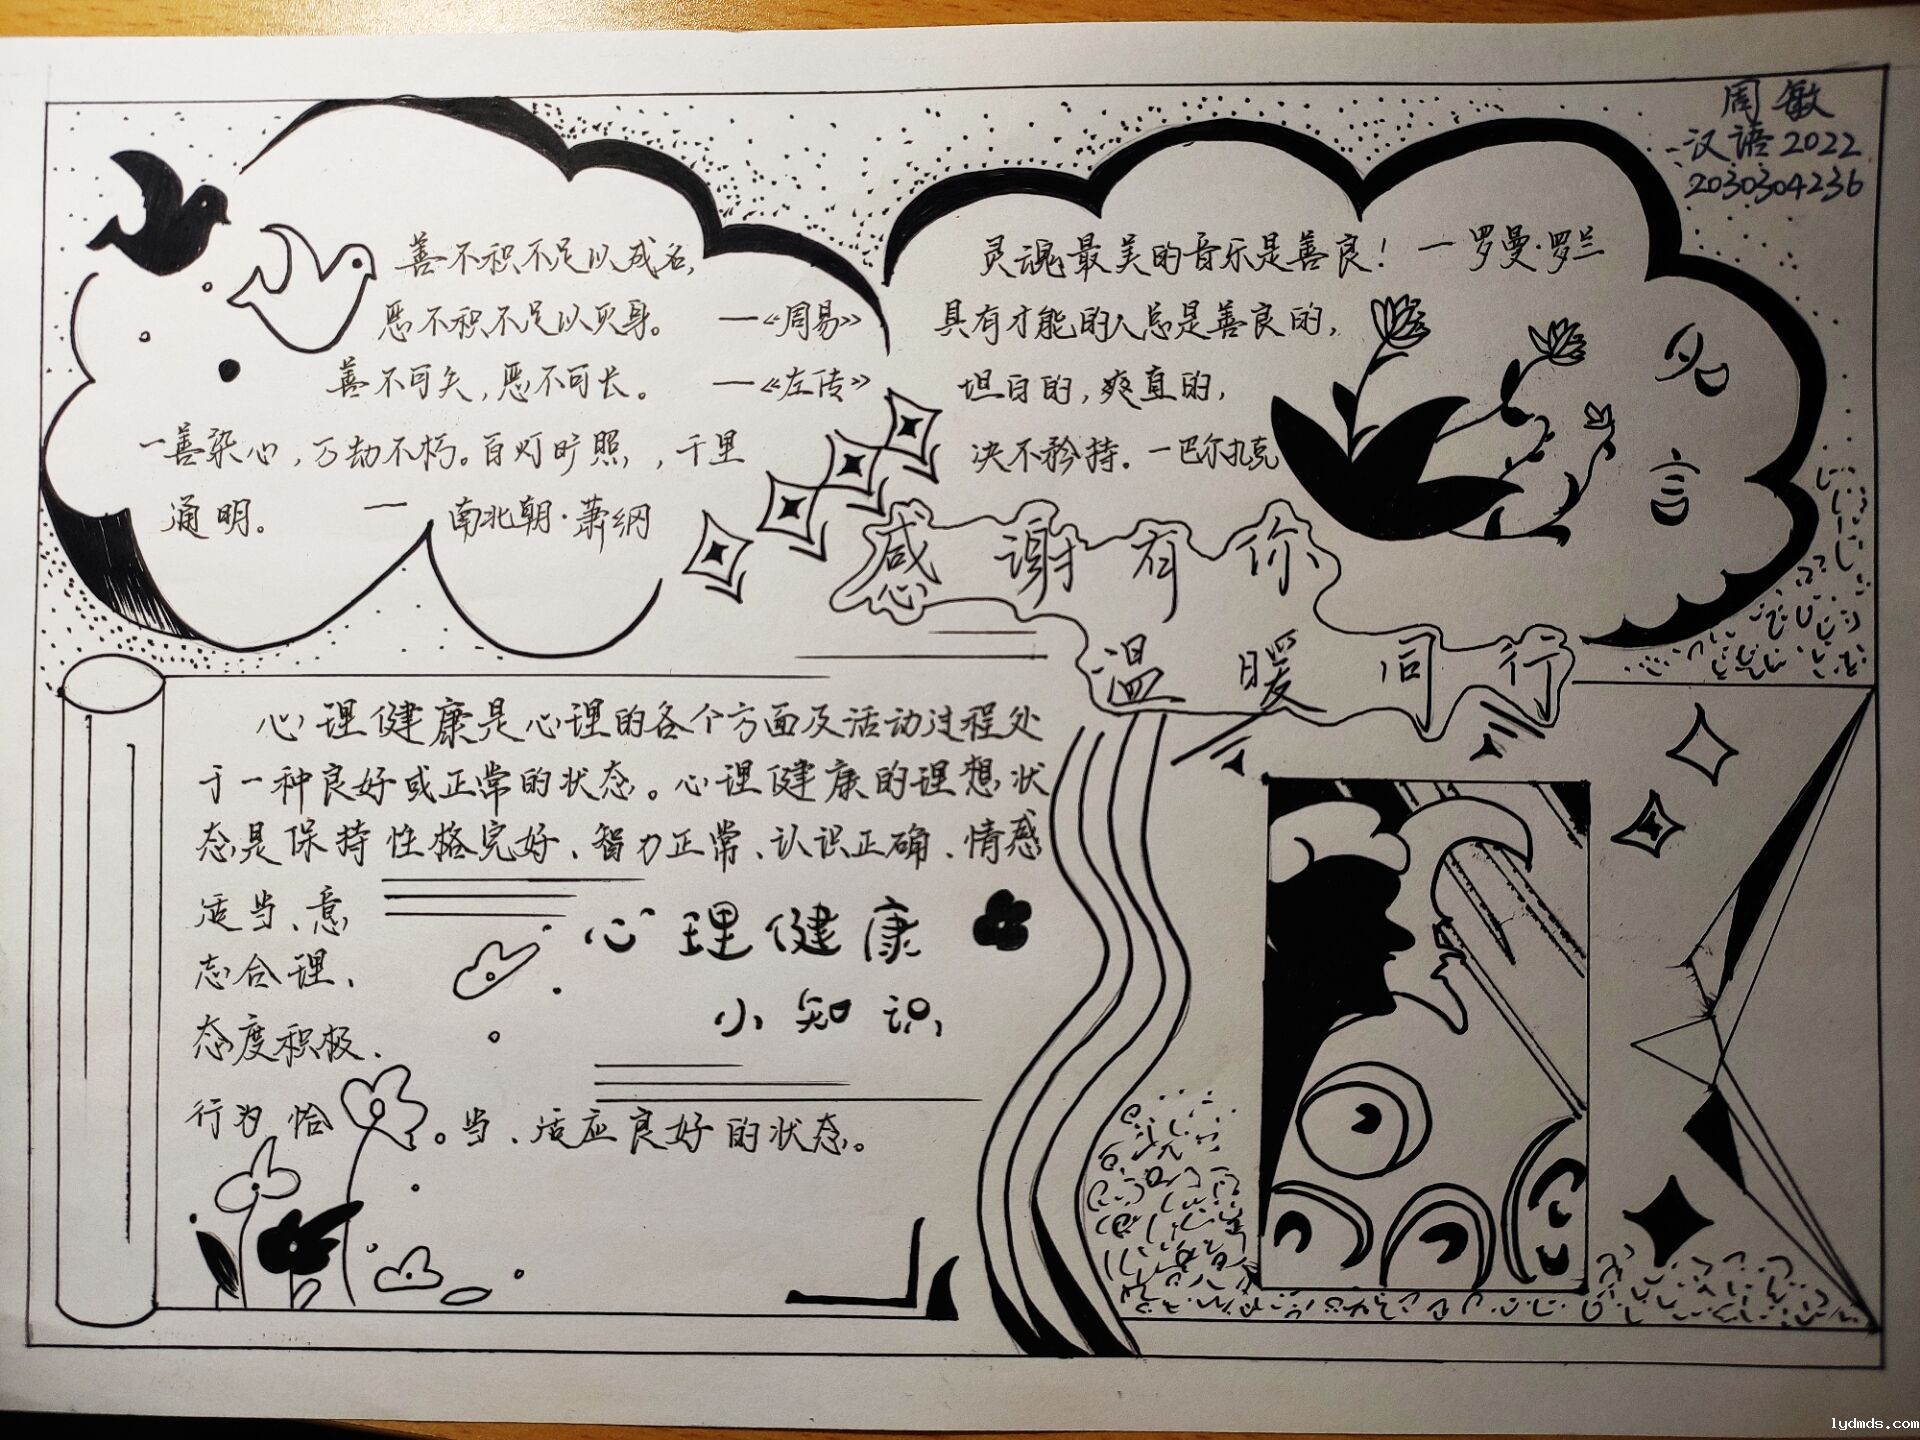 周敏
汉语2022
2030304236
善不积不足以成名,
恶不积不足以灭身。 —《周易》
善不可失,恶不可长。 —《左传》
一善染心,万劫不朽。百灯旷照,千里
通明。 — 南北朝·萧纲
灵魂最美的音乐是善良! —罗曼·罗兰
具有才能的人总是善良的,
坦白的,爽直的,
决不矜持。—巴尔扎克
名
言
感谢有你
温暖同行
心理健康是心理的各个方面及活动过程处
于一种良好或正常的状态。心理健康的理想状
态是保持性格完好、智力正常、认识正确、情感
适当、意
志合理、
态度积极、
行为恰 。当、适应良好的状态。
心理健康
小知识
lydmds.com